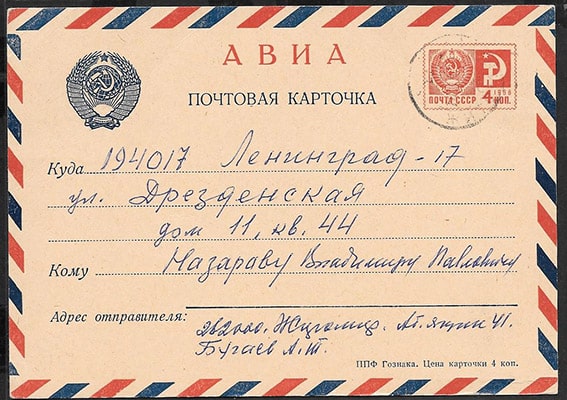 АВИА
ПОЧТОВАЯ КАРТОЧКА
ПОЧТА СССР 4 КОП.
1966
Куда 194017 Ленинград-17
ул. Дрезденская
дом 11, кв. 44
Кому Назарову Владимиру Павловичу
Адрес отправителя: 262000. Житомир.
41.
Бугаев А.Т.
ППФ Гознака. Цена карточки 4 коп.